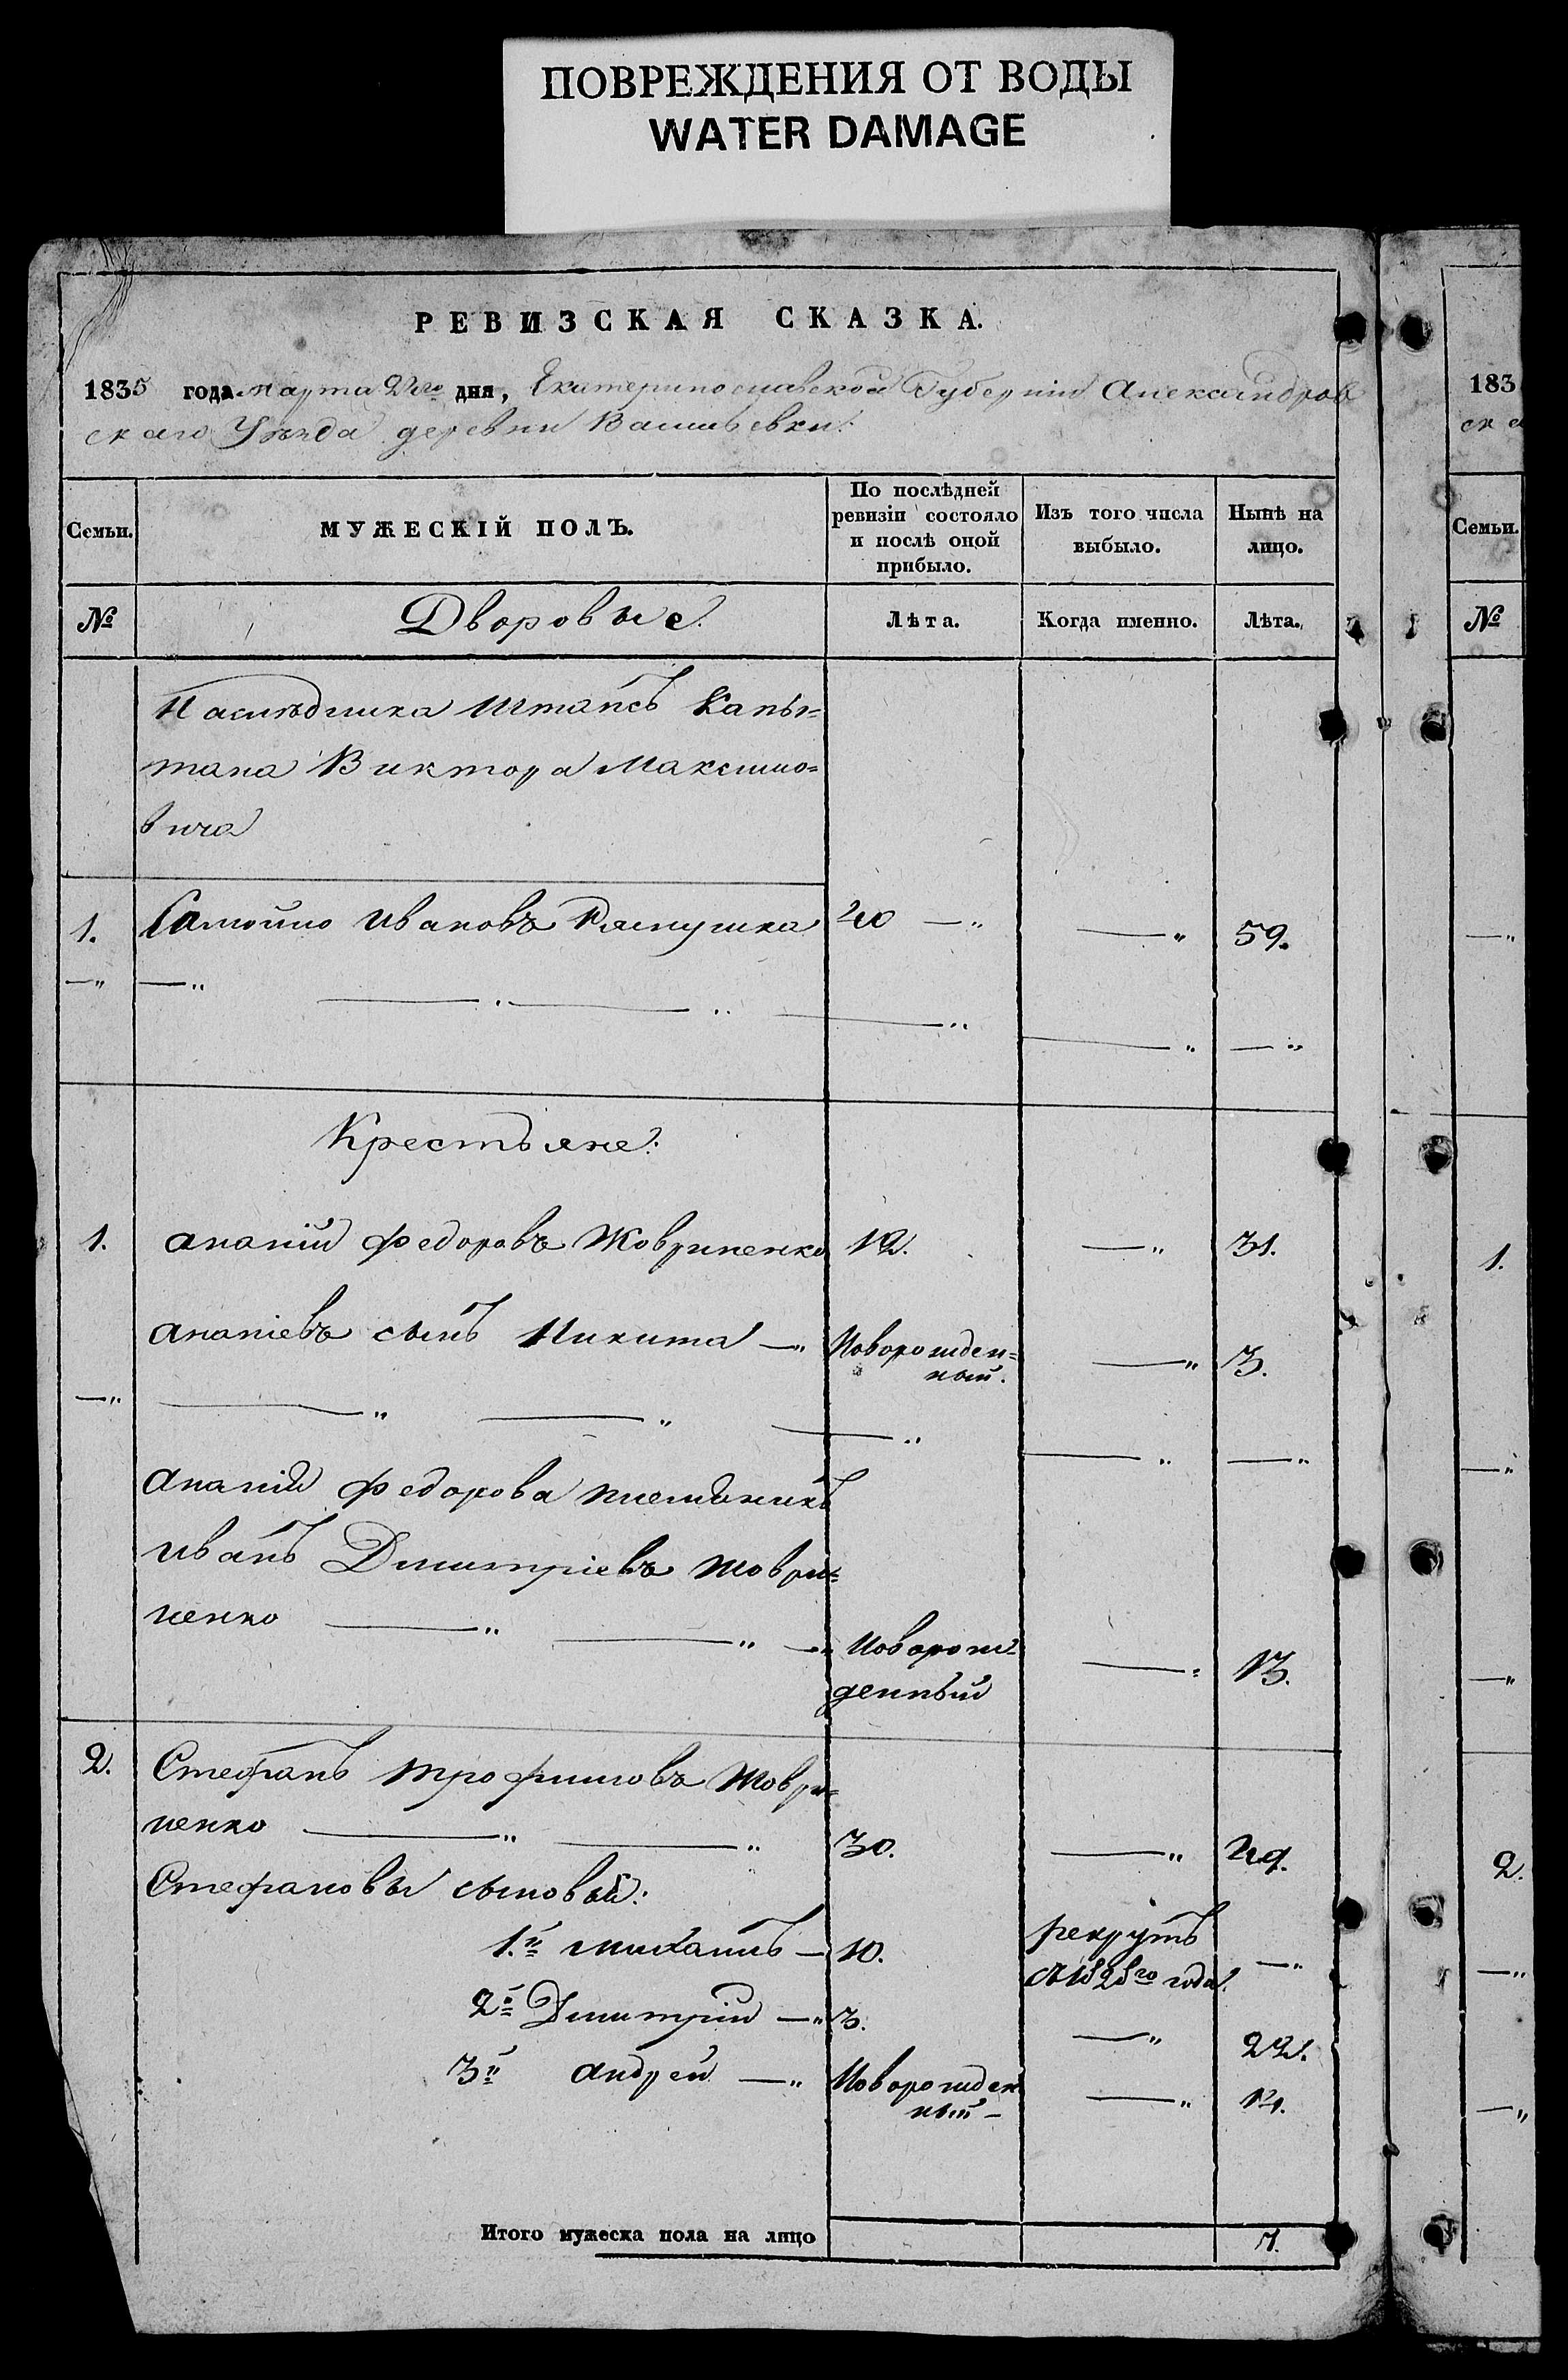 ПОВРЕЖДЕНИЯ ОТ ВОДЫ
WATER DAMAGE
РЕВИЗСКАЯ СКАЗКА.
1835 года Марта 2го дня, Екатеринославской Губерніи Александров
скаго Уѣзда деревни Васильевки.
Семьи.
МУЖЕСКІЙ ПОЛЪ.
По послѣдней ревизіи состояло и послѣ оной прибыло.
Изъ того числа выбыло.
Нынѣ на лицо.
№
Дворовые.
Лѣта.
Когда именно.
Лѣта.
Наслѣдника Штапсъ Капы=
тана Виктора Максимо=
вича
1. Самойло Ивановъ 40 —„ —„ 59.
Крестьяне:
1. Ананій Федоровъ Жовриненко 12. —„ 31.
Ананіевъ сынъ Никита —„ Новорожден=
ный. —„ 3.
Ананія Федорова племянникъ
Иванъ Дмитріевъ Жоври=
ненко —„ —„ —„ Новорож=
денный —„ 13.
2. Стефанъ Трофимовъ Жоври=
ненко —„ —„ 30. —„ 49.
Стефановы сыновья:
1.й Михаилъ — 10. рекрутъ
съ 1828го года. —„
2й Дмитрій —„ 3. —„ 22.
3й Андрей —„ Новорожден
ный — —„ 14.
Итого мужеска пола на лицо 7.
183
ск
Семьи.
№
1.
2.